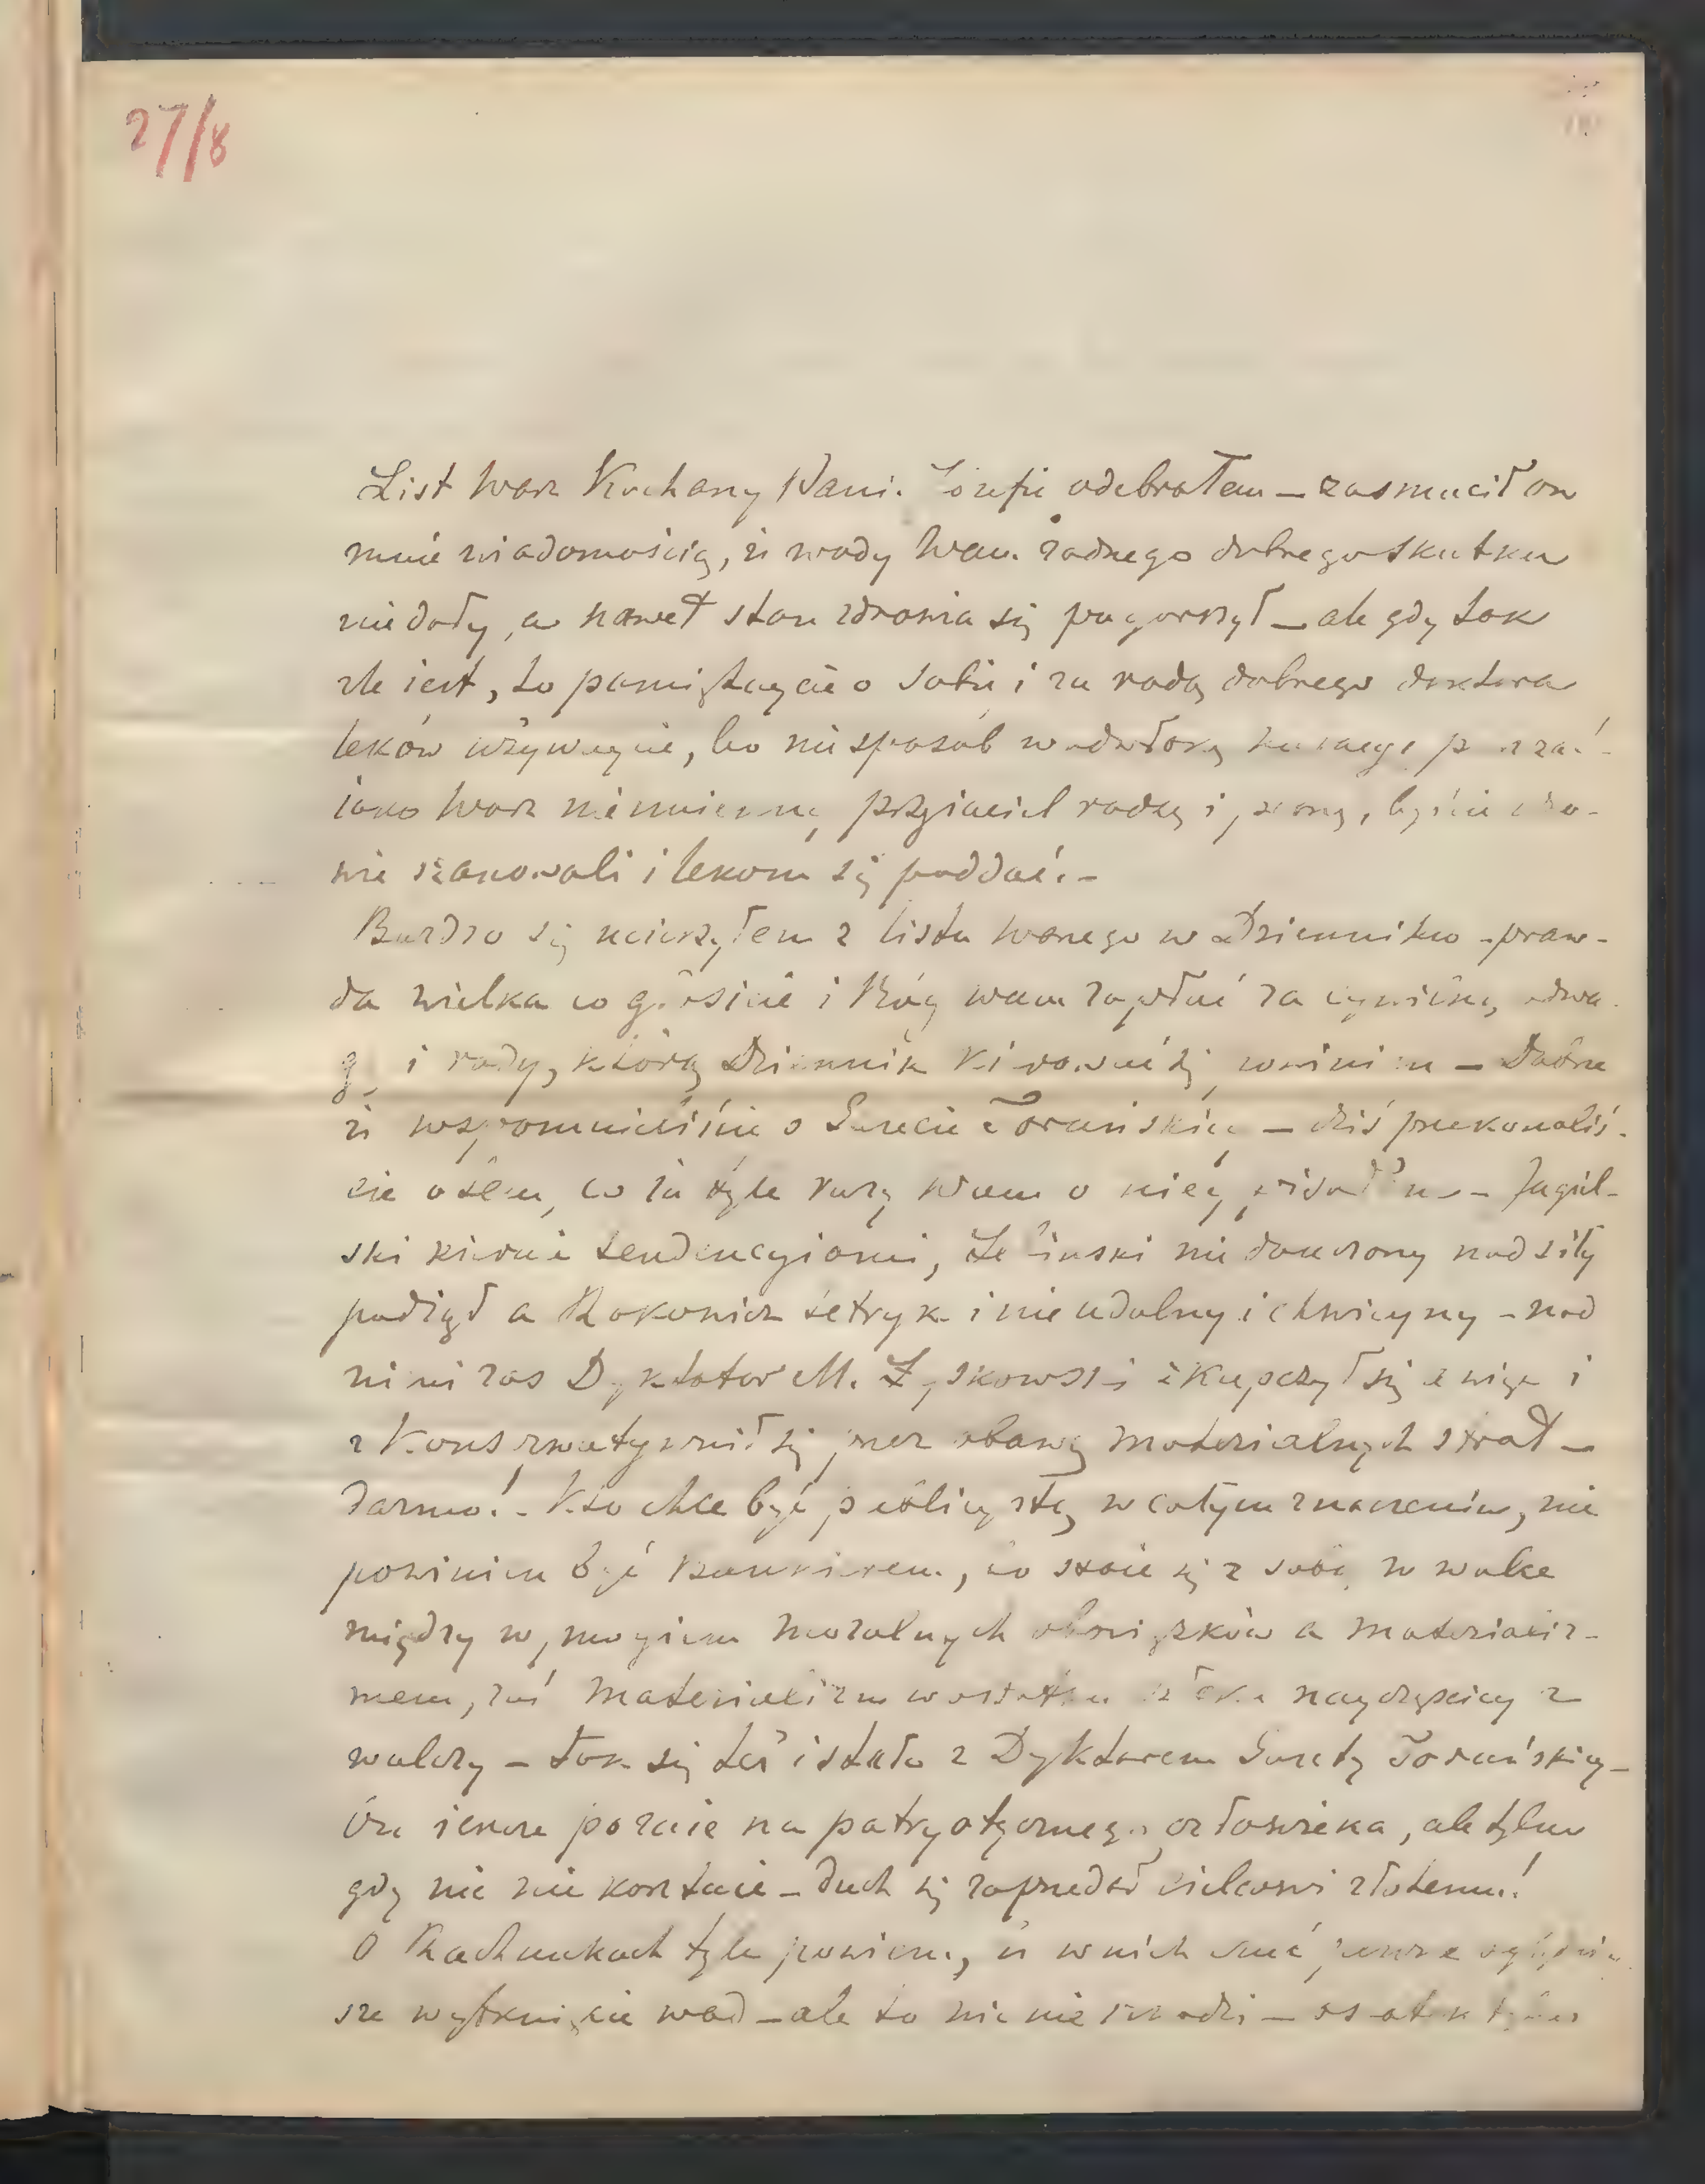 27/8
List Wasz Kochany Panie Józefie odebrałem – zasmucił on
mnie wiadomością, iż wody Wam żadnego dobrego skutku
nie dały, a nawet stan zdrowia się pogorszył – ale gdy tak
źle iest, to pamiętaycie o sobie i za radą dobrego doktora
leków używaycie, bo nie sposób
iako Wasz niezmienny przyiaciel radzę i proszę, byście zdro-
wie szanowali i lekom się poddać. –
Bardzo się ucieszyłem z listu Waszego w Dzienniku – praw-
da wielka co głosicie i Bóg Wam zapłać za cywilną odwa-
gę i rady, którą Dziennik kierować się winien – Dobrze
iż wspomnieliście o Gazecie Toruńskiey – dziś przekonaliś-
cie o tem, co ia tyle razy Wam o niey pisałem – Jagiel-
ski kieruie tendencyiami, nie douczony nad siły
podiął a Rakowicz tetryk i nieudolny i chwieyny – nad
nimi zas Dyktator M. Łyskowski skupczył się więc i
zkonserwatywnił się przez obawę materialnych strat –
darmo! – Kto chce być publicystą w całym znaczeniu, nie
powinien być Bankierem, bo staie się z sobą w walce
między wymogiem moralnych obowiązków a materializ-
mem, zaś materializm w ostatku nayczęściey z
walczy – tak się też i stało z Dyktatorem Gazety Toruńskiey –
On ieszcze pozuie na patryotycznego człowieka, ale tylko
gdy nic nie kosztuie – duch się zaprzedał cielcowi złotemu!
O Rachunkach tyle powiem, iż w nich
sze wytknięcie wad – ale to nic nie szkodzi –